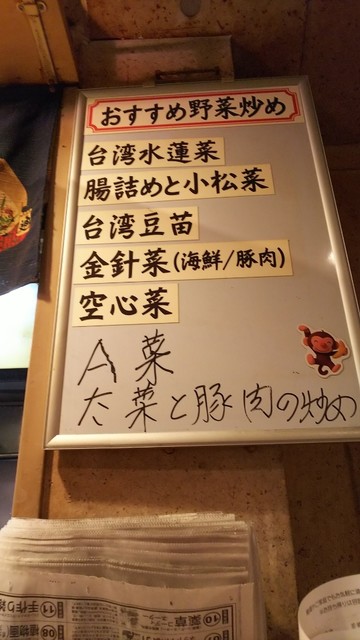 おすすめ野菜炒め
台湾水蓮菜
腸詰めと小松菜
台湾豆苗
金針菜(海鮮/豚肉)
空心菜
A菜
大菜と豚肉の炒め